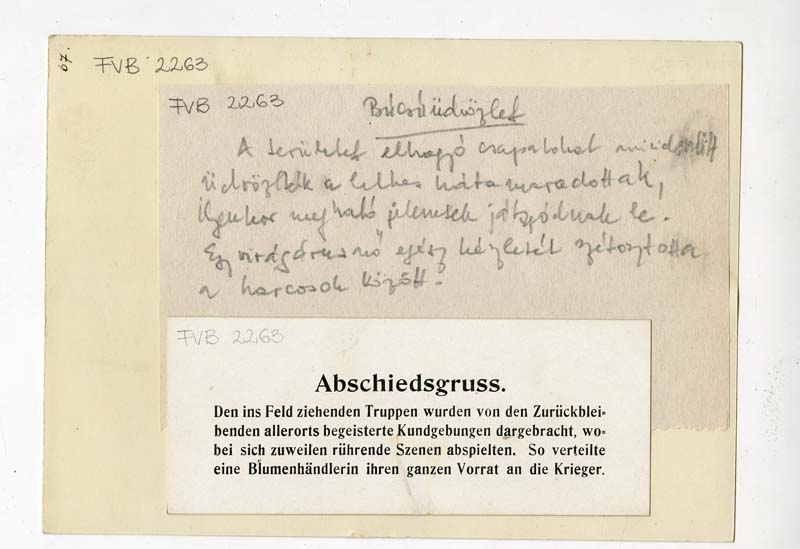 67.
FVB 2263
FVB 2263
Búcsúüdvözlet
A területet elhagyó csapatokat mindenütt
üdvözölték a lelkes hátramaradottak,
ilyenkor megható jelenetek játszódnak le.
Egy virágárus nő egész készletét szétosztotta
a harcosok között.
FVB 2263
Abschiedsgruss.
Den ins Feld ziehenden Truppen wurden von den Zurückblei=
benden allerorts begeisterte Kundgebungen dargebracht, wo=
bei sich zuweilen rührende Szenen abspielten. So verteilte
eine Blumenhändlerin ihren ganzen Vorrat an die Krieger.